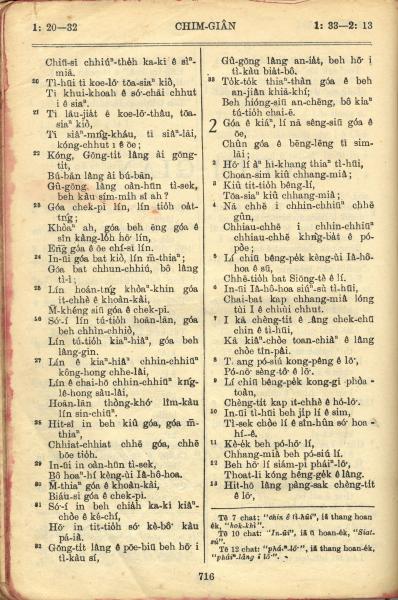 1: 20—32
CHIM-GIÂN
1: 33—2: 13
Chiū-sī chhiúⁿ-thėh ka-kī ê sìⁿ-
miā.
20 Tì-hūi tī koe-lō͘ tōa-siaⁿ kiò,
Tī khui-khoah ê só͘-chāi chhut
i ê siaⁿ.
21 Tī láu-jia̍t ê koe-lō͘-thâu, tōa-
siaⁿ kiò,
Tī siâⁿ-mn̂g-kháu, tī siâⁿ-lāi,
kóng-chhut i ê ōe;
22 Kóng, Gōng-ti̍t lâng ài gōng-
ti̍t,
Bú-bān lâng ài bú-bān,
Gû-gōng lâng oàn-hūn tì-sek,
beh kàu sím-mi̍h sî ah?
23 Góa chek-pī lín, lín tio̍h oa̍t-
tńg;
Khòaⁿ ah, góa beh ēng góa ê
sîn kàng-lo̍h hō͘ lín,
Ēng góa ê ōe chí-sī lín.
24 In-ūi góa bat kiò, lín m̄-thiaⁿ;
Góa bat chhun-chhiú, bô lâng
tì-ì;
25 Lín hoán-tńg khòaⁿ-khin góa
it-chhè ê khoàn-kài,
M̄-khéng siū góa ê chek-pī.
26 Só͘-í lín tú-tio̍h hoān-lān, góa
beh chhìn-chhiò,
Lín tú-tio̍h kiaⁿ-hiâⁿ, góa beh
lâng-gín.
27 Lín ê kiaⁿ-hiâⁿ chhin-chhiūⁿ
kông-hong chhe-lâi,
Lín ê chai-hō chhin-chhiūⁿ kńg-
lê-hong sàu-lâi,
Hoān-lān thòng-khó͘ lîm-kàu
lín sin-chiūⁿ.
28 Hit-sî in beh kiû góa, góa m̄-
thiaⁿ,
Chhiat-chhiat chhē góa, chhē
bōe tio̍h.
29 In-ūi in oàn-hūn tì-sek,
Bô hoaⁿ-hí kèng-ùi Iâ-hô-hoa.
30 M̄-thiaⁿ góa ê khoàn-kài,
Biáu-sī góa ê chek-pī.
31 Só͘-í in beh chiah ka-kī kiâⁿ-
chòe ê ké-chí,
Hō͘ in tit-tio̍h só͘ kè-bô͘ kàu
pá-iā.
32 Gōng-ti̍t lâng ê pōe-biū beh hō͘ i
tì-kàu sí,
Gû-gōng lâng an-ia̍t, beh hō͘ i
tì-kàu bia̍t-bô.
33 To̍k-to̍k thiaⁿ-thàn góa ê beh
an-jiân khiā-khí;
Beh hióng-siū an-chēng, bô kiaⁿ
tú-tio̍h chai-ē.
2 Góa ê kiáⁿ, lí nā sêng-siū góa ê
ōe,
Chûn góa ê bēng-lēng tī sim-
lāi;
2 Hō͘ lí àⁿ hī-khang thiaⁿ tì-hūi,
Choan-sim kiû chhang-miâ;
3 Kiû tit-tio̍h bêng-lí,
Tōa-siaⁿ kiû chhang-miâ;
4 Nā chhē i chhin-chhiūⁿ chhē
gûn,
Chhiau-chhē i chhin-chhiūⁿ
chhiau-chhē khǹg-ba̍t ê pó-
pòe;
5 Lí chiū bêng-pe̍k kèng-ùi Iâ-hô-
hoa ê sū,
Chhē-tio̍h bat Siōng-tè ê lí.
6 In-ūi Iâ-hô-hoa siúⁿ-sù tì-hūi,
Chai-bat kap chhang-miâ lóng
tùi I ê chhùi chhut.
7 I kā chèng-ti̍t ê lâng chek-chū
chin ê tì-hūi,
Kā kiâⁿ-chòe toan-chiàⁿ ê lâng
chòe tîn-pâi.
8 T. ang pó-siú kong-pêng ê lō͘,
Pó-hō͘ sèng-tô͘ ê lō͘.
9 Lí chiū bêng-pe̍k kong-gī phòaⁿ-
toàn,
Chèng-ti̍t kap it-chhè ê hó-lō͘.
10 In-ūi tì-hūi beh ji̍p lí ê sim,
Tì-sek chòe lí ê sîn-hûn só͘ hoaⁿ-
hí—ê.
11 Kè-e̍k beh pó-hō͘ lí,
Chhang-miâ beh pó-siú lí.
12 Beh hō͘ lí siám-pī pháiⁿ-lō͘,
Thoat-lī kóng hêng-ge̍k ê lâng.
13 Hit-hō lâng pàng-sak chèng-ti̍t
ê lō͘,
Tē 7 chat: "chin ê tì-hūi", iā thang hoan-
e̍k, "hok-khì".
Tē 10 chat: "In-ūi", iā ū hoan-e̍k, "Siat-
sú".
Tē 12 chat: "pháiⁿ-lō͘", iā thang hoan-e̍k,
"pháiⁿ-lâng ê lō͘".
716